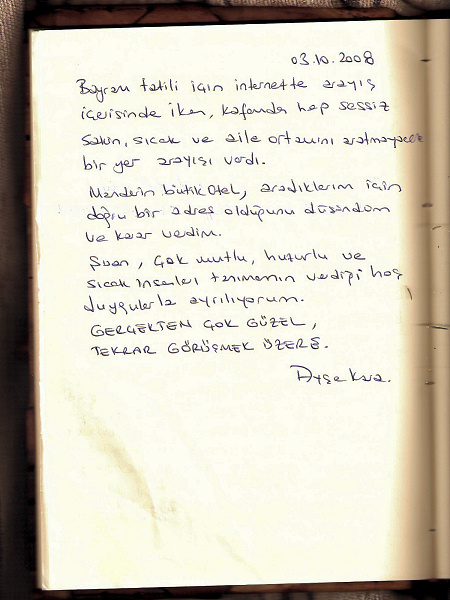 03.10.2008
Bayram tatili için internette arayış
içerisinde iken, kafamda hep sessiz
sakin, sıcak ve aile ortamını aratmayacak
bir yer arayışı vardı.
Mandalin butik Otel, aradıklarım için
doğru bir adres olduğunu düşündüm
ve karar verdim.
Şuan, çok mutlu, huzurlu ve
sıcak insanları tanımanın verdiği hoş
duygularla ayrılıyorum.
GERÇEKTEN ÇOK GÜZEL,
TEKRAR GÖRÜŞMEK ÜZERE.
Ayşe Kara.